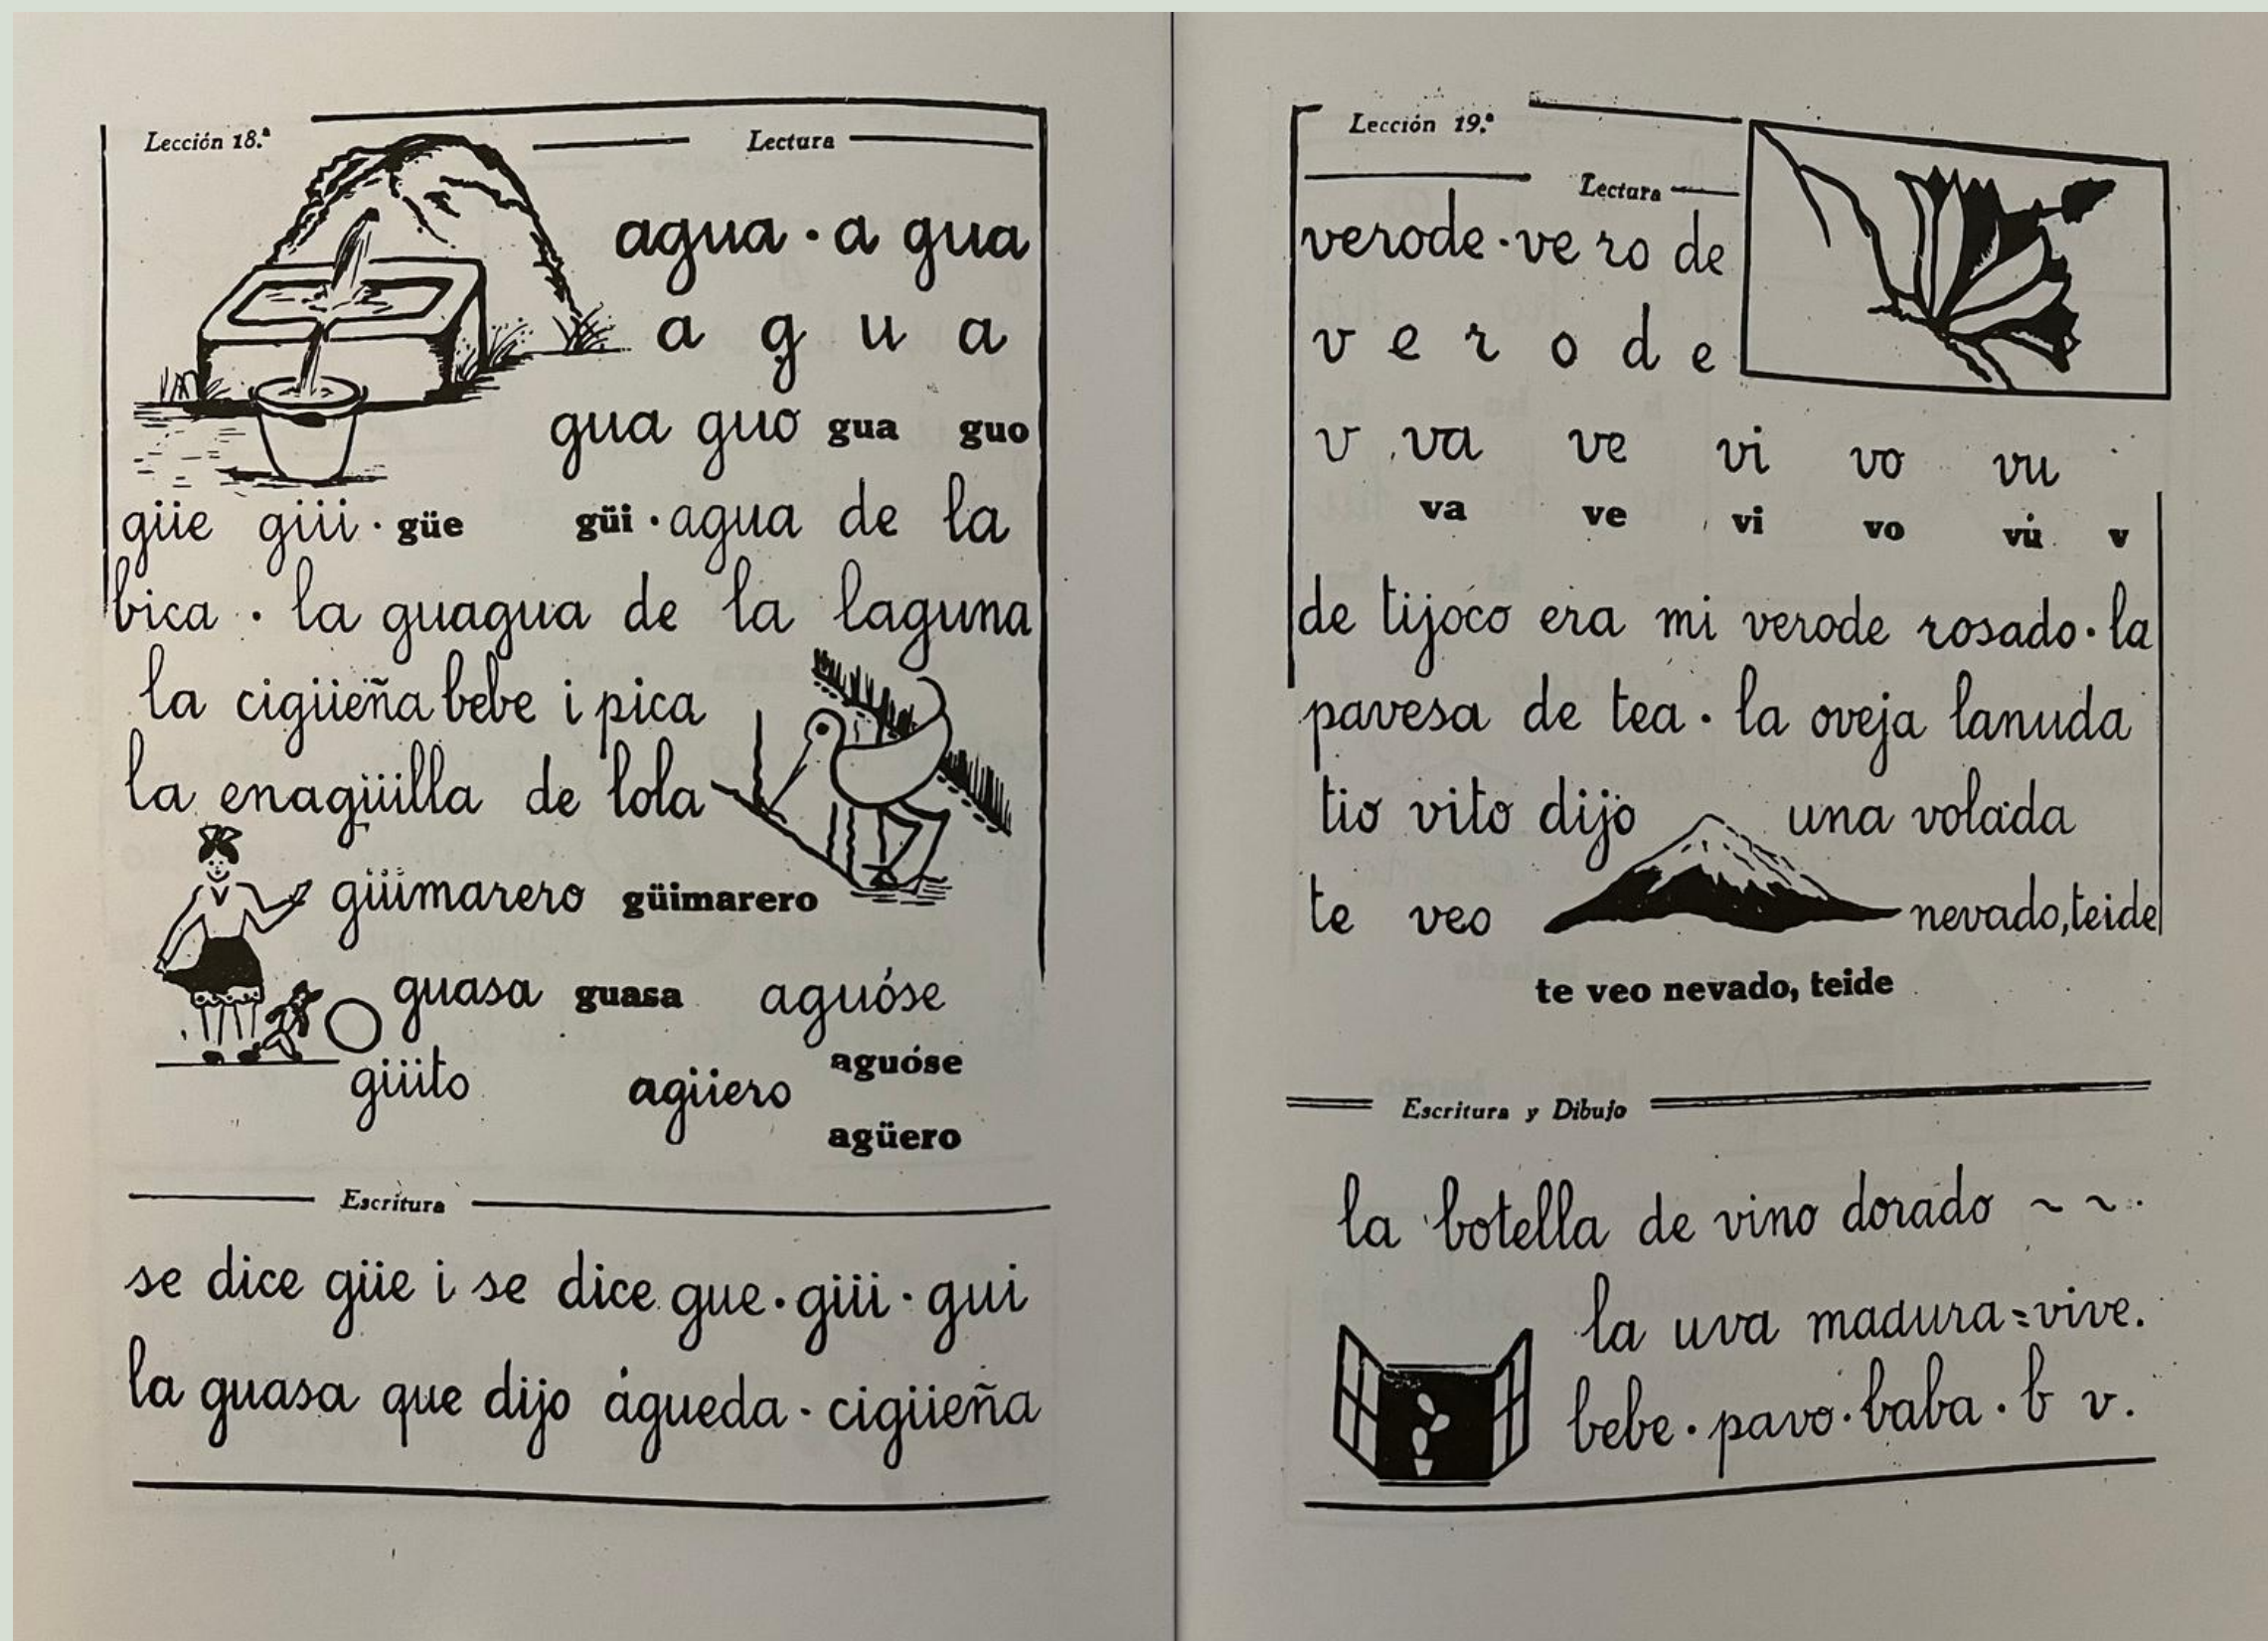 Lección 18.ª
Lectura
agua · a gua
a g u a
gua guo gua guo
güe güi · güe güi · agua de la
bica · la guagua de la laguna
la cigüeña bebe i pica
la enagüilla de lola
güimarero güimarero
guasa guasa aguóse
aguóse
güito agüero
agüero
Escritura
se dice güe i se dice gue · güi · gui
la guasa que dijo águeda · cigüeña
Lección 19.ª
Lectura
verode · ve ro de
v e r o d e
v va ve vi vo vu
va ve vi vo vu v
de tijoco era mi verode rosado · la
pavesa de tea · la oveja lanuda
tio vito dijo una volada
te veo nevado, teide
te veo nevado, teide
Escritura y Dibujo
la botella de vino dorado ~ ~ ·
la uva madura = vive.
bebe · pavo · baba · b v.